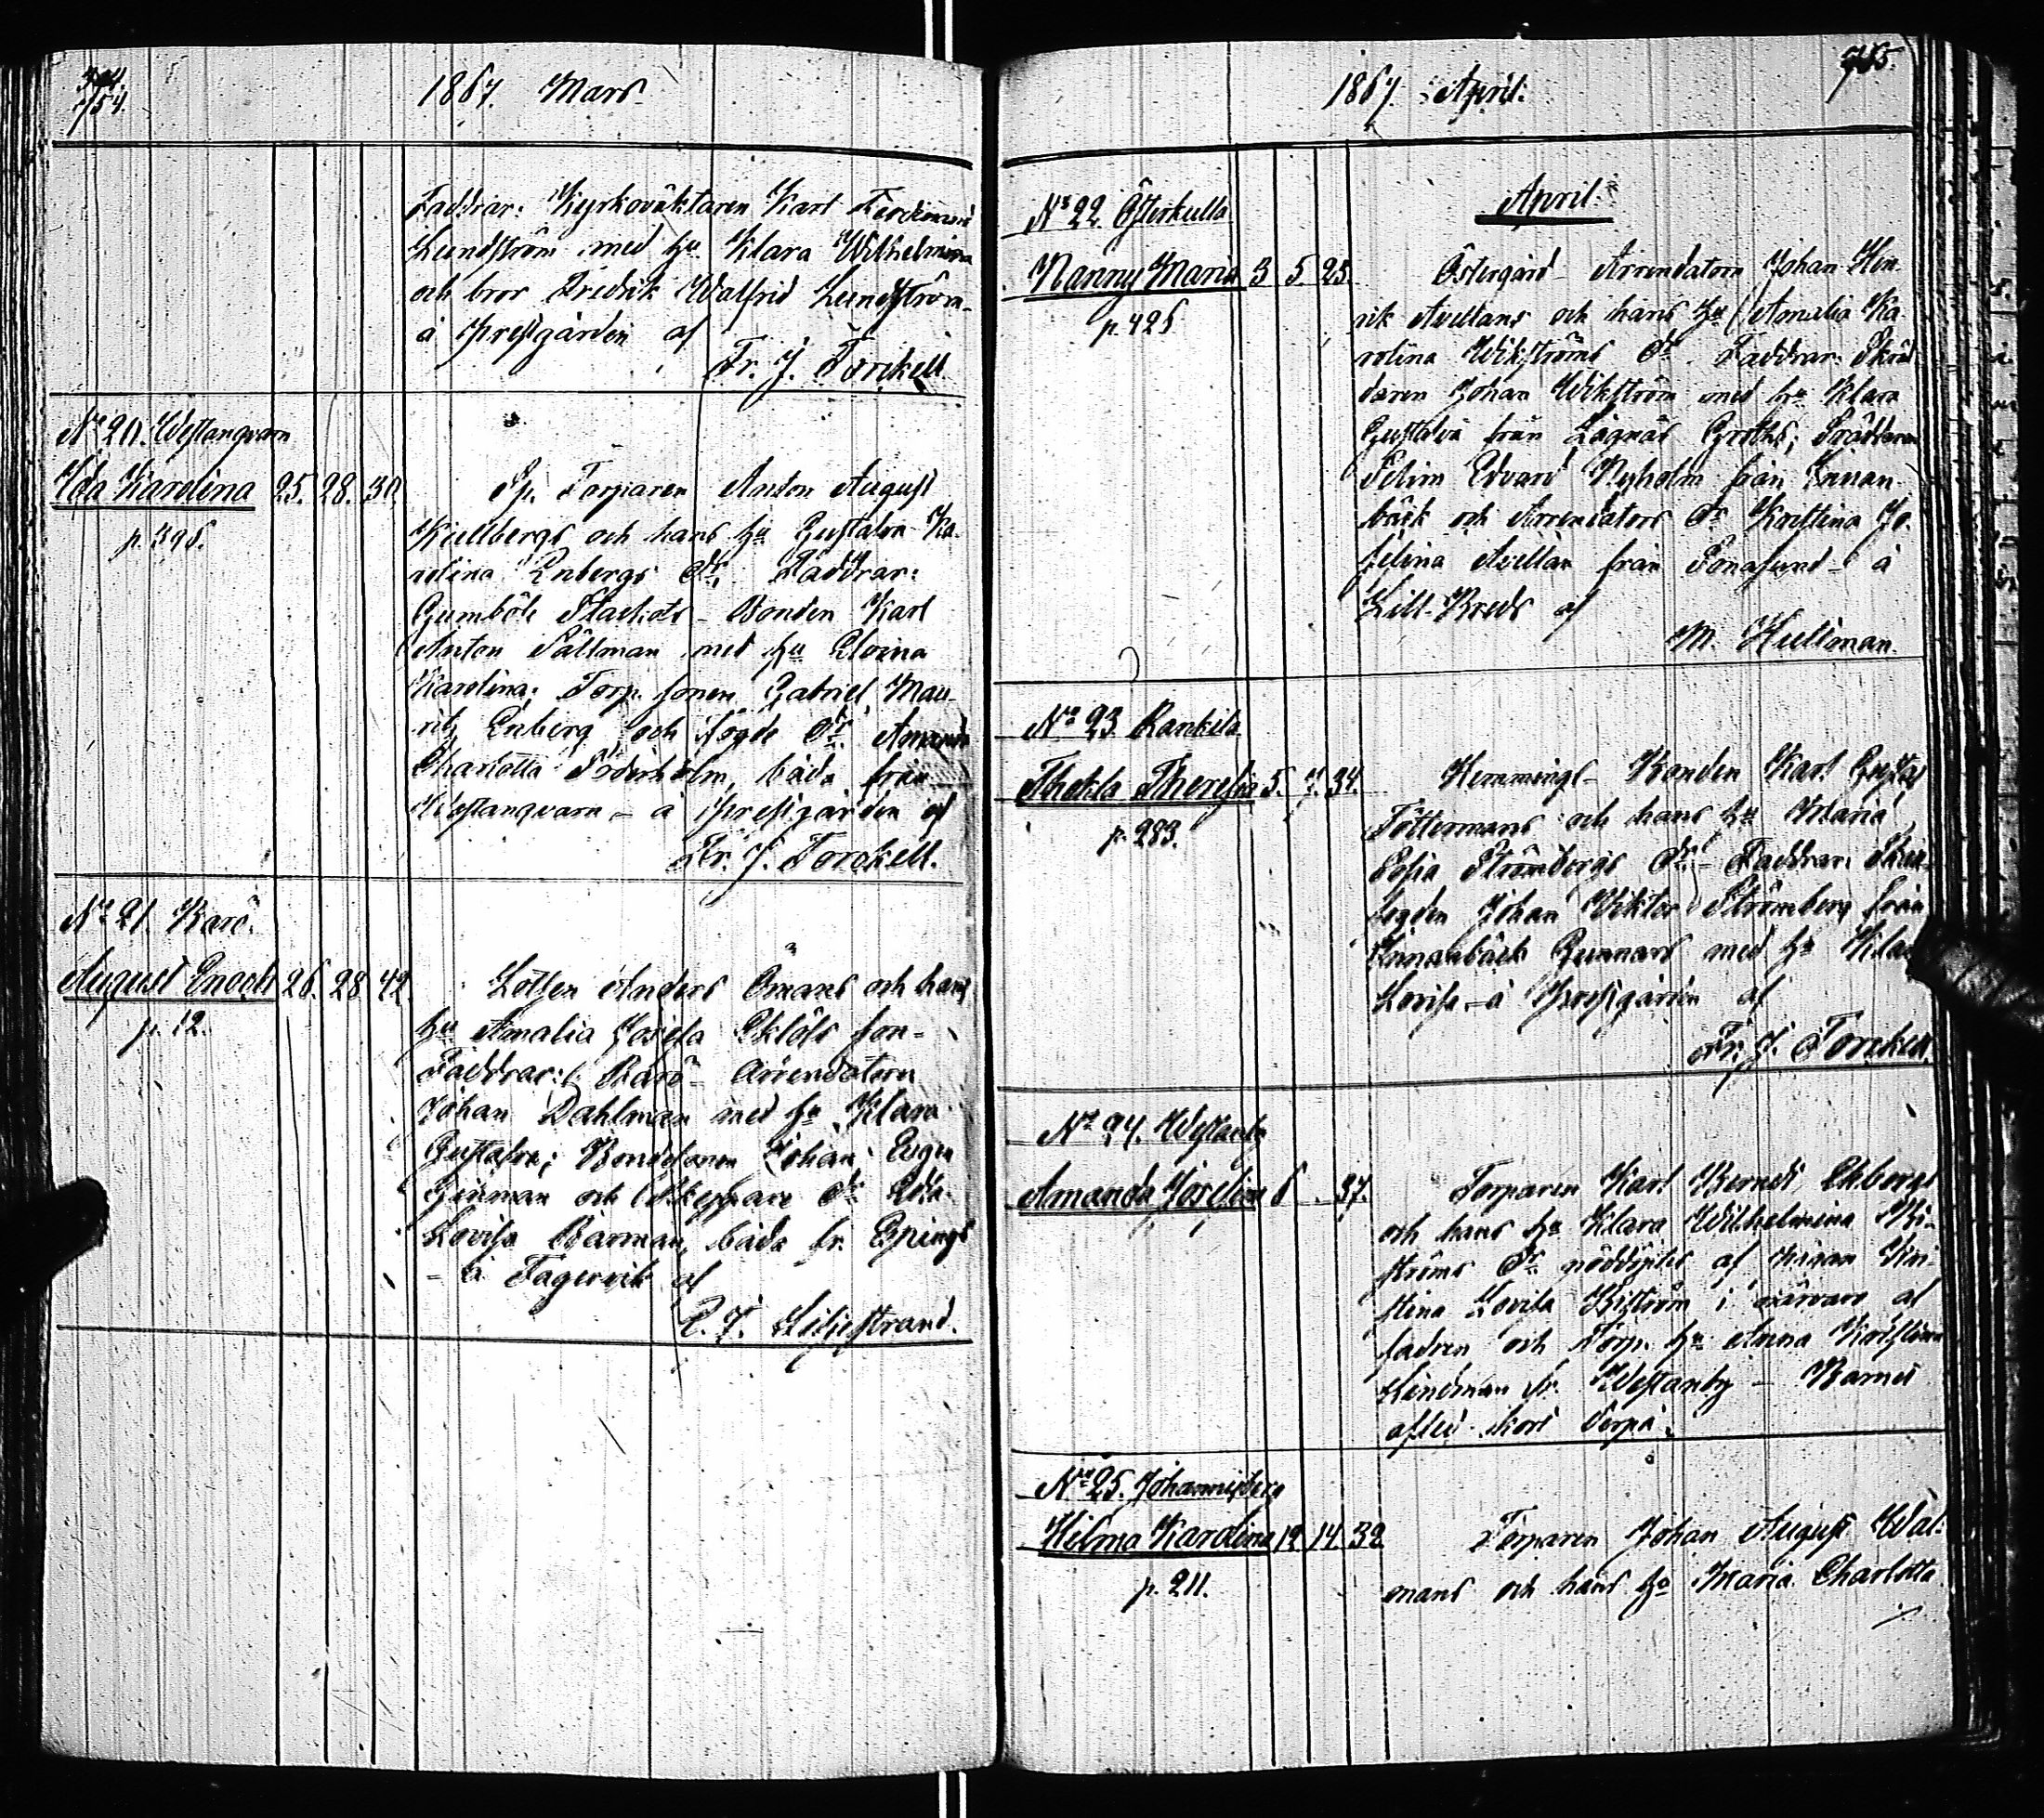 754.
1867. Mars.
Faddrar: Kyrkoväktaren Karl Ferdinand
Lundström med hu Klara Wilhelmina
och bror Fredrik Walfrid Lundström
å Prestgården af
Fr. J. Torckell.
No 20. Westanqvarn
Ida Karolina 25. 28. 30.
p. 398.
Sp. Torparen Anton August
Kullbergs och hans hu Gustafva Ka-
rolina Enbergs dr. Faddrar:
Gumböle Stackots - Bonden Karl
Anton Sällman med hu Elvina
Karolina; Torp. sonen Gabriel Mau-
ritz Enberg och Logde dr. Amanda
Charlotta Söderholm, båda från
Westanqvarn, - å Prestgården af
Fr. J. Torckell.
No 21. Barö.
August Enoch 26. 28. 42.
p. 12.
Lotsen Anders Ömans och hans
hu Amalia Josefa Eklöfs son -
Faddrar: Barö - Arrendatorn
Johan Dahlman med hu Klara
Gustafva; Bondesonen Johan Eugen
och Skeppare dr. Eda
Lovisa Barman, båda fr. Espings
- å Fagervik af
E. J. Liljestrand.
755.
1867. April.
April.
No 22. Österkulla
Nanny Maria 3 5 23.
p. 426
Östergård - Arrendatorn Johan Hin-
rik Avellans och hans hu Amalia Ka-
rolina Wikströms dr. Faddrar: Skräd-
daren Johan Wikström med hu Klara
Gustafva från Lågnäs Grothes; Skräddaren
Edvard Nyholm från Innan-
bäck och Arrendators dr Kristina Jo-
sefina Avellan från Sonasund - å
Lill-Breds af
M. Hultman.
No 23. Rankila
Thekla Theresia 5. 7. 34.
p. 283.
Hemmings - Bonden Karl Gustaf
Töttermans och hans hu Maria
Sofia Strömbergs dr - Faddrar:
Johan Viktor Strömberg från
Innanbäck Gunnars med hu
Lovisa - å Prestgården af
Fr. J. Torckell.
No 24. Westanby
Amanda Josefina 6 . 37.
Torparen Karl Berndt Ekbergs
och hans hu Klara Wilhelmina Ki-
ströms dr. nöddöptes af pigan Kri-
stina Lovisa Kiström i närvaro af
fadren och Torp. hu Anna Kristina
Lindman fr. Westanby - Barnet
afled kort derpå.
No 25. Johannisberg
Hilma Karolina 12. 14. 32
p. 211.
Torparen Johan August Wal-
mans och hans hu Maria Charlotta